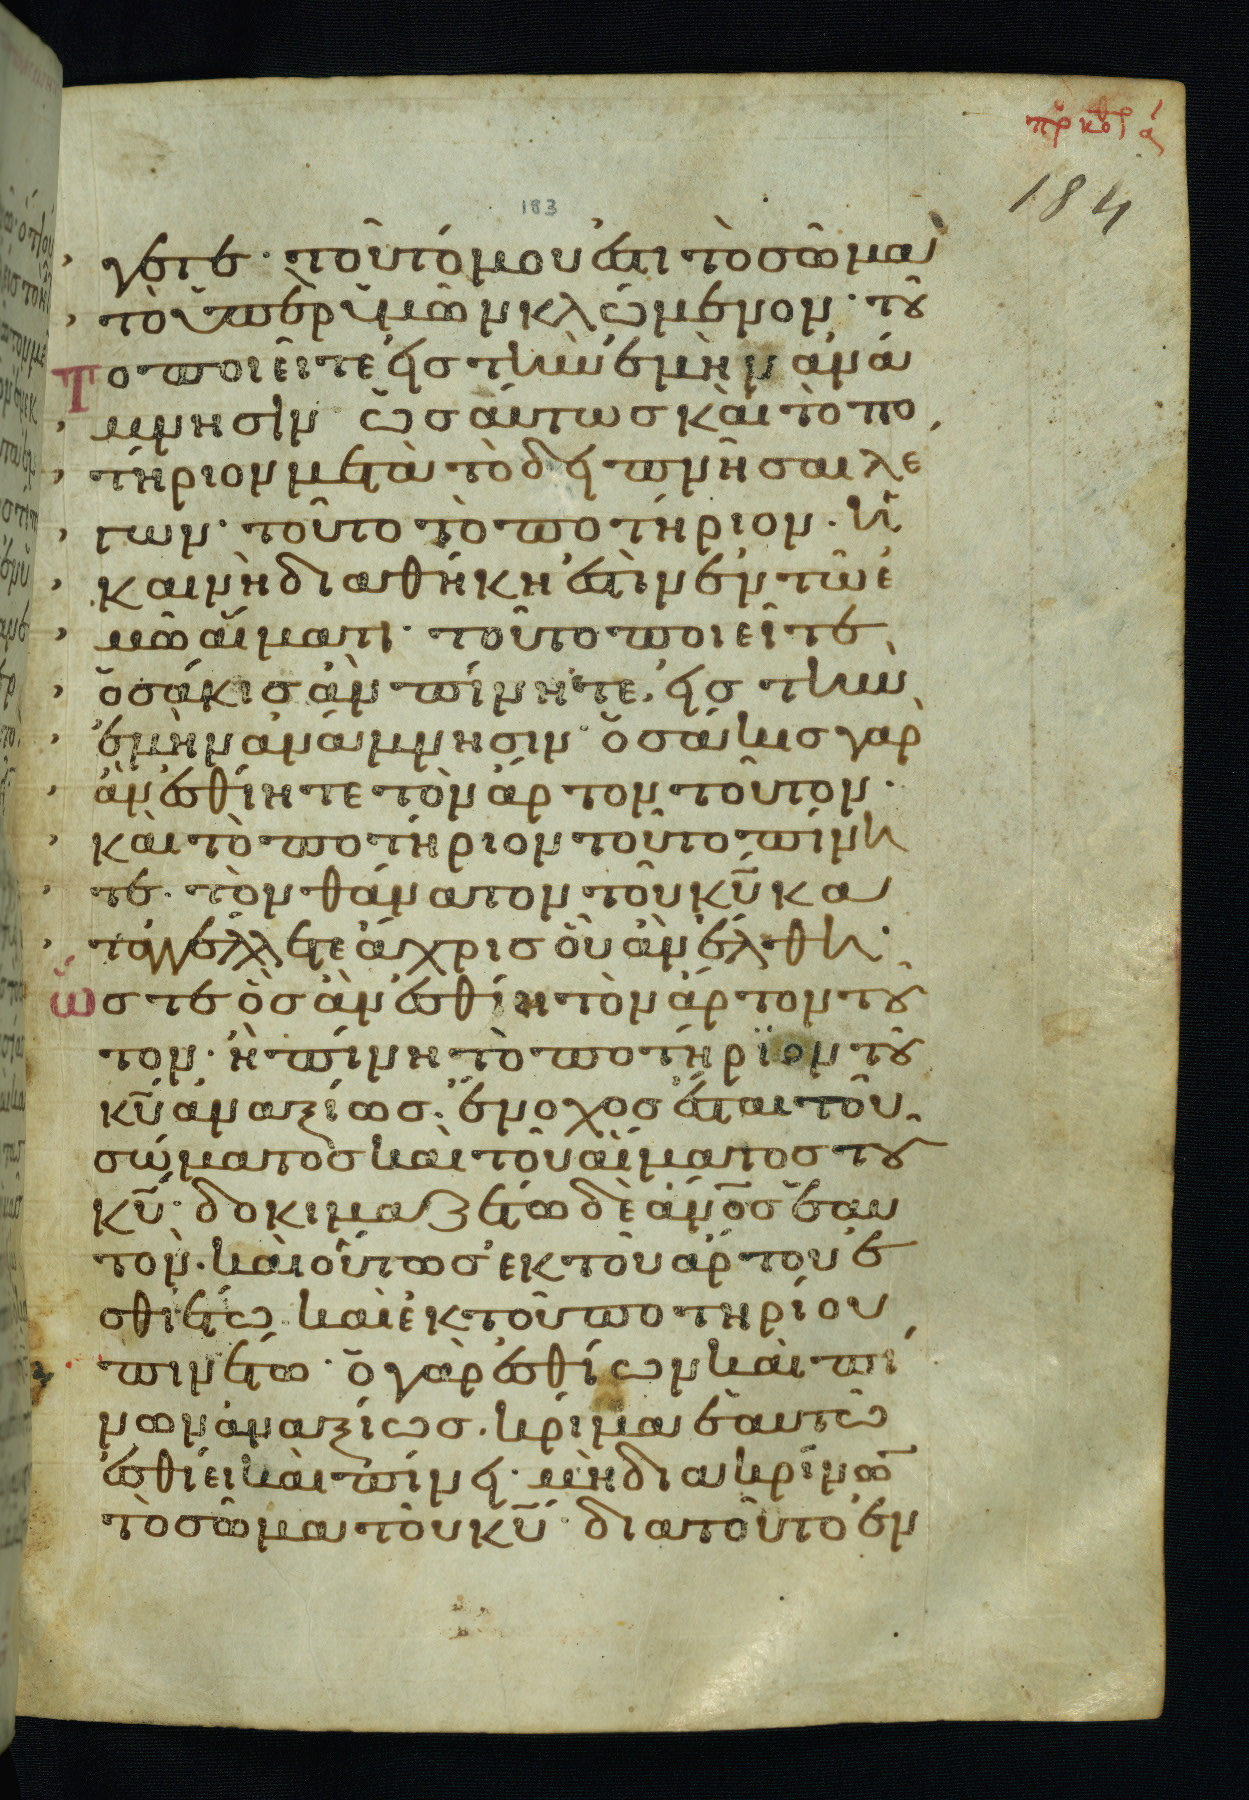 πρ κορ ά
184
183
γετε· τοῦτό μου ἐστι τὸ σῶμα
τὸ ὑπὲρ ὑμῶν κλώμενον· τοῦ
το ποιεῖτε εἰς τὴν ἐμὴν ἀνά
μνησιν ὡσάυτως καὶ τὸ πο
τήριον μετὰ τὸ δειπνῆσαι λέ
γων· τοῦτο τὸ ποτήριον· ἡ
καινὴ διαθήκη ἐστὶν ἐν τῶ ἐ
μῶ αἵματι· τοῦτο ποιεῖτε
ὁσάκις ἀν πίνητε, εἰς τὴν
ἐμὴν ἀνάμνησιν· ὁσάκις γὰρ
ἀν ἐσθίητε τὸν ἄρτον τοῦτον·
καὶ τὸ ποτήριον τοῦτο πίνη
τε· τὸν θάνατον τοῦ κῦ κα
ταγγέλλετε ἄχρις οὗ ἀν ἔλθη·
ὥστε ὃς ἀν ἐσθίη τὸν ἄρτον τοῦ
τον· ἢ πίνη τὸ ποτήριον τοῦ
κῦ ἀναξίως· ἔνοχος ἔσται τοῦ
σώματος καὶ τοῦ αἵματος τοῦ
κῦ· δοκιμαζέτω δὲ ἀνος ἑαυ
τὸν· καὶ οὕτως ἐκ τοῦ ἄρτου ἐ
σθιέτω καὶ ἐκ τοῦ ποτηρίου
πινέτω· ὁ γὰρ ἐσθίων καὶ πί
νων ἀναξίως· κρίμα ἑαυτῶ
ἐσθίει καὶ πίνει· μὴ διακρίνων
τὸ σῶμα τοῦ κῦ· διατοῦτο ἐν